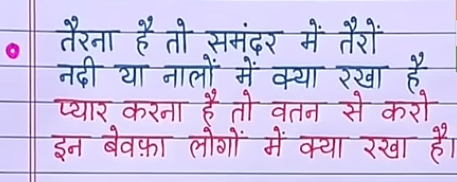 तैरना है तो समंदर में तैरों
नदी या नालों में क्या रखा है
प्यार करना है तो वतन से करो
इन बेवफ़ा लोगों में क्या रखा है।